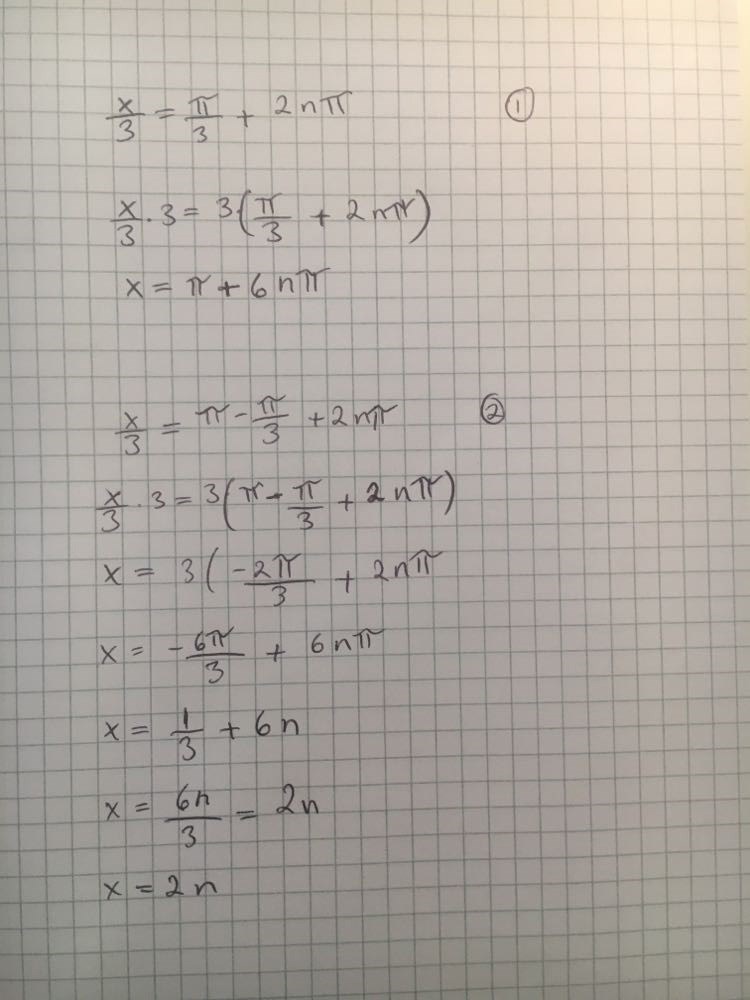 x/3 = π/3 + 2nπ ①
x/3 · 3 = 3(π/3 + 2nπ)
x = π + 6nπ
x/3 = π - π/3 + 2nπ ②
x/3 · 3 = 3(π - π/3 + 2nπ)
x = 3(-2π/3 + 2nπ
x = -6π/3 + 6nπ
x = 1/3 + 6n
x = 6n/3 = 2n
x = 2n